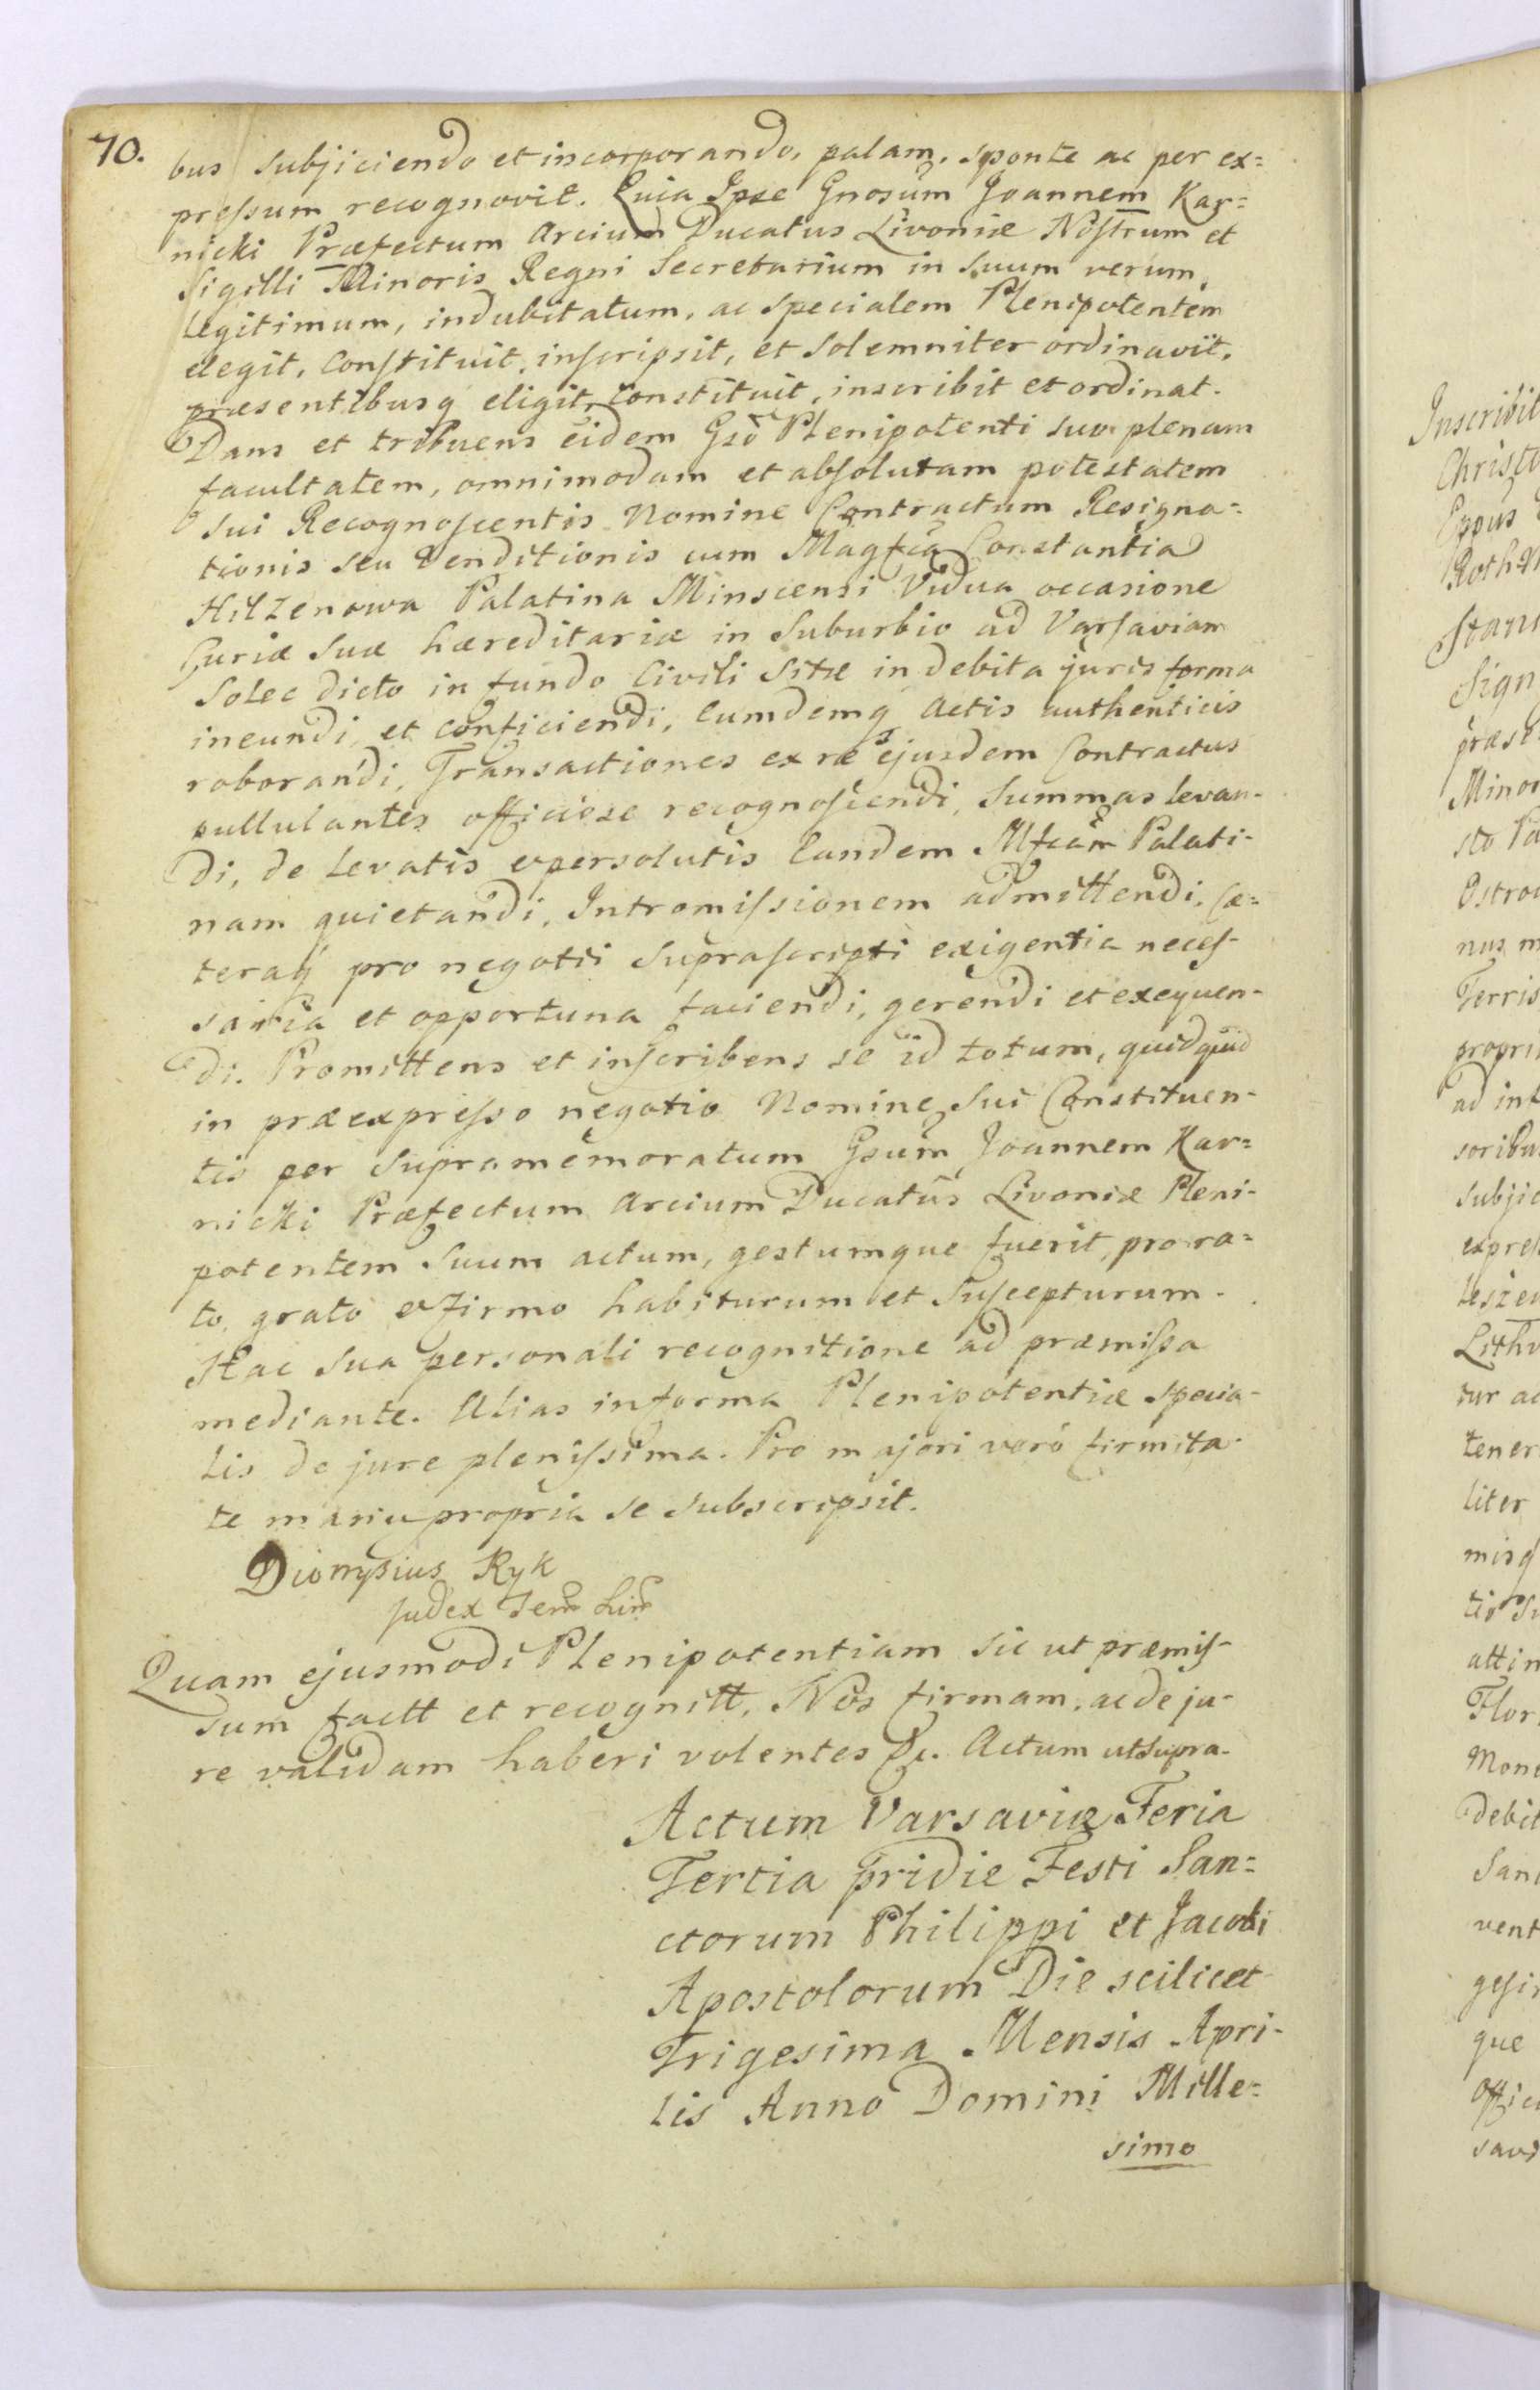 70.
bus subjiciendo et incorporando, palam, sponte ac per ex=
preſsum recognovit. Quia Ipse Gnosum Joannem Kar=
nicki Præfectum Arcium Ducatus Livoniæ Noſtrum et
Sigilli Minoris Regni Secretarium in suum verum,
legitimum, indubitatum, ac specialem Plenipotentem
elegit, Conſtituit, inſcripsit, et Solemniter ordinavit,
præsentibusq eligit, Constituit, inscribit et ordinat.
Dans et tribuens eidem Gso Plenipotenti suo plenam
facultatem, omnimodam et abſolutam potestatem
Sui Recognoſcentis Nomine Contractum Resigna=
tionis seu Venditionis cum Magfca Constantia
Hilzenowa Palatina Minscensi Vidua occasione
Curiæ Suæ hæreditariæ in Suburbio ad Varſaviam
Solec dicto in fundo Civili Sitæ in debita juris forma
ineundi, et conficiendi, Eumdemq Actis authenticis
roborandi, Transactiones ex ræ ejusdem Contractus
pullulantes officiose recognoſcendi, Summas levan-
di, de levatis et persolutis Eandem Mfcam Palati-
nam quietandi, Intromiſsionem admittendi, Cæ=
teraq pro negotii Supraſcripti exigentia neceſ-
saria et opportuna faciendi, gerendi et exequen-
di. Promittens et inſcribens se id totum, quidquid
in præexpreſso negotio Nomine Sui Constituen-
tis per Supramemoratum Gsum Joannem Kar=
nicki Præfectum Arcium Ducatus Livoniæ Pleni-
potentem Suum actum, gestumque fuerit, pro ra=
to, grato et firmo habiturum et Suſcepturum.
Hac Sua personali recognitione ad præmiſsa
mediante. Alias in forma Plenipotentiæ Specia-
lis de jure pleniſsima. Pro majori veró firmita-
te manu propria se Subscripsit.
Dionysius Ryk
Judex
Quam ejusmodi Plenipotentiam sic ut præmiſ-
sum factt et recognitt, Nos firmam, ac de ju-
re validam haberi volentes &c. Actum ut Supra.
Actum Varsaviæ Feria
Tertia pridie Festi San=
ctorum Philippi et Jacobi
Apostolorum Die scilicet
Trigesima Mensis Apri-
lis Anno Domini Mille=
simo
Inscribit
Christo
Eppus
Sign
præst
Minor
Ostrow
nus m
Terris
propri
ad int
soribus
subjic
expreſs
Lith
tur ac
tener
liter
misq
attin
Flor
Mone
debit
San
vent
geſi
que
offic